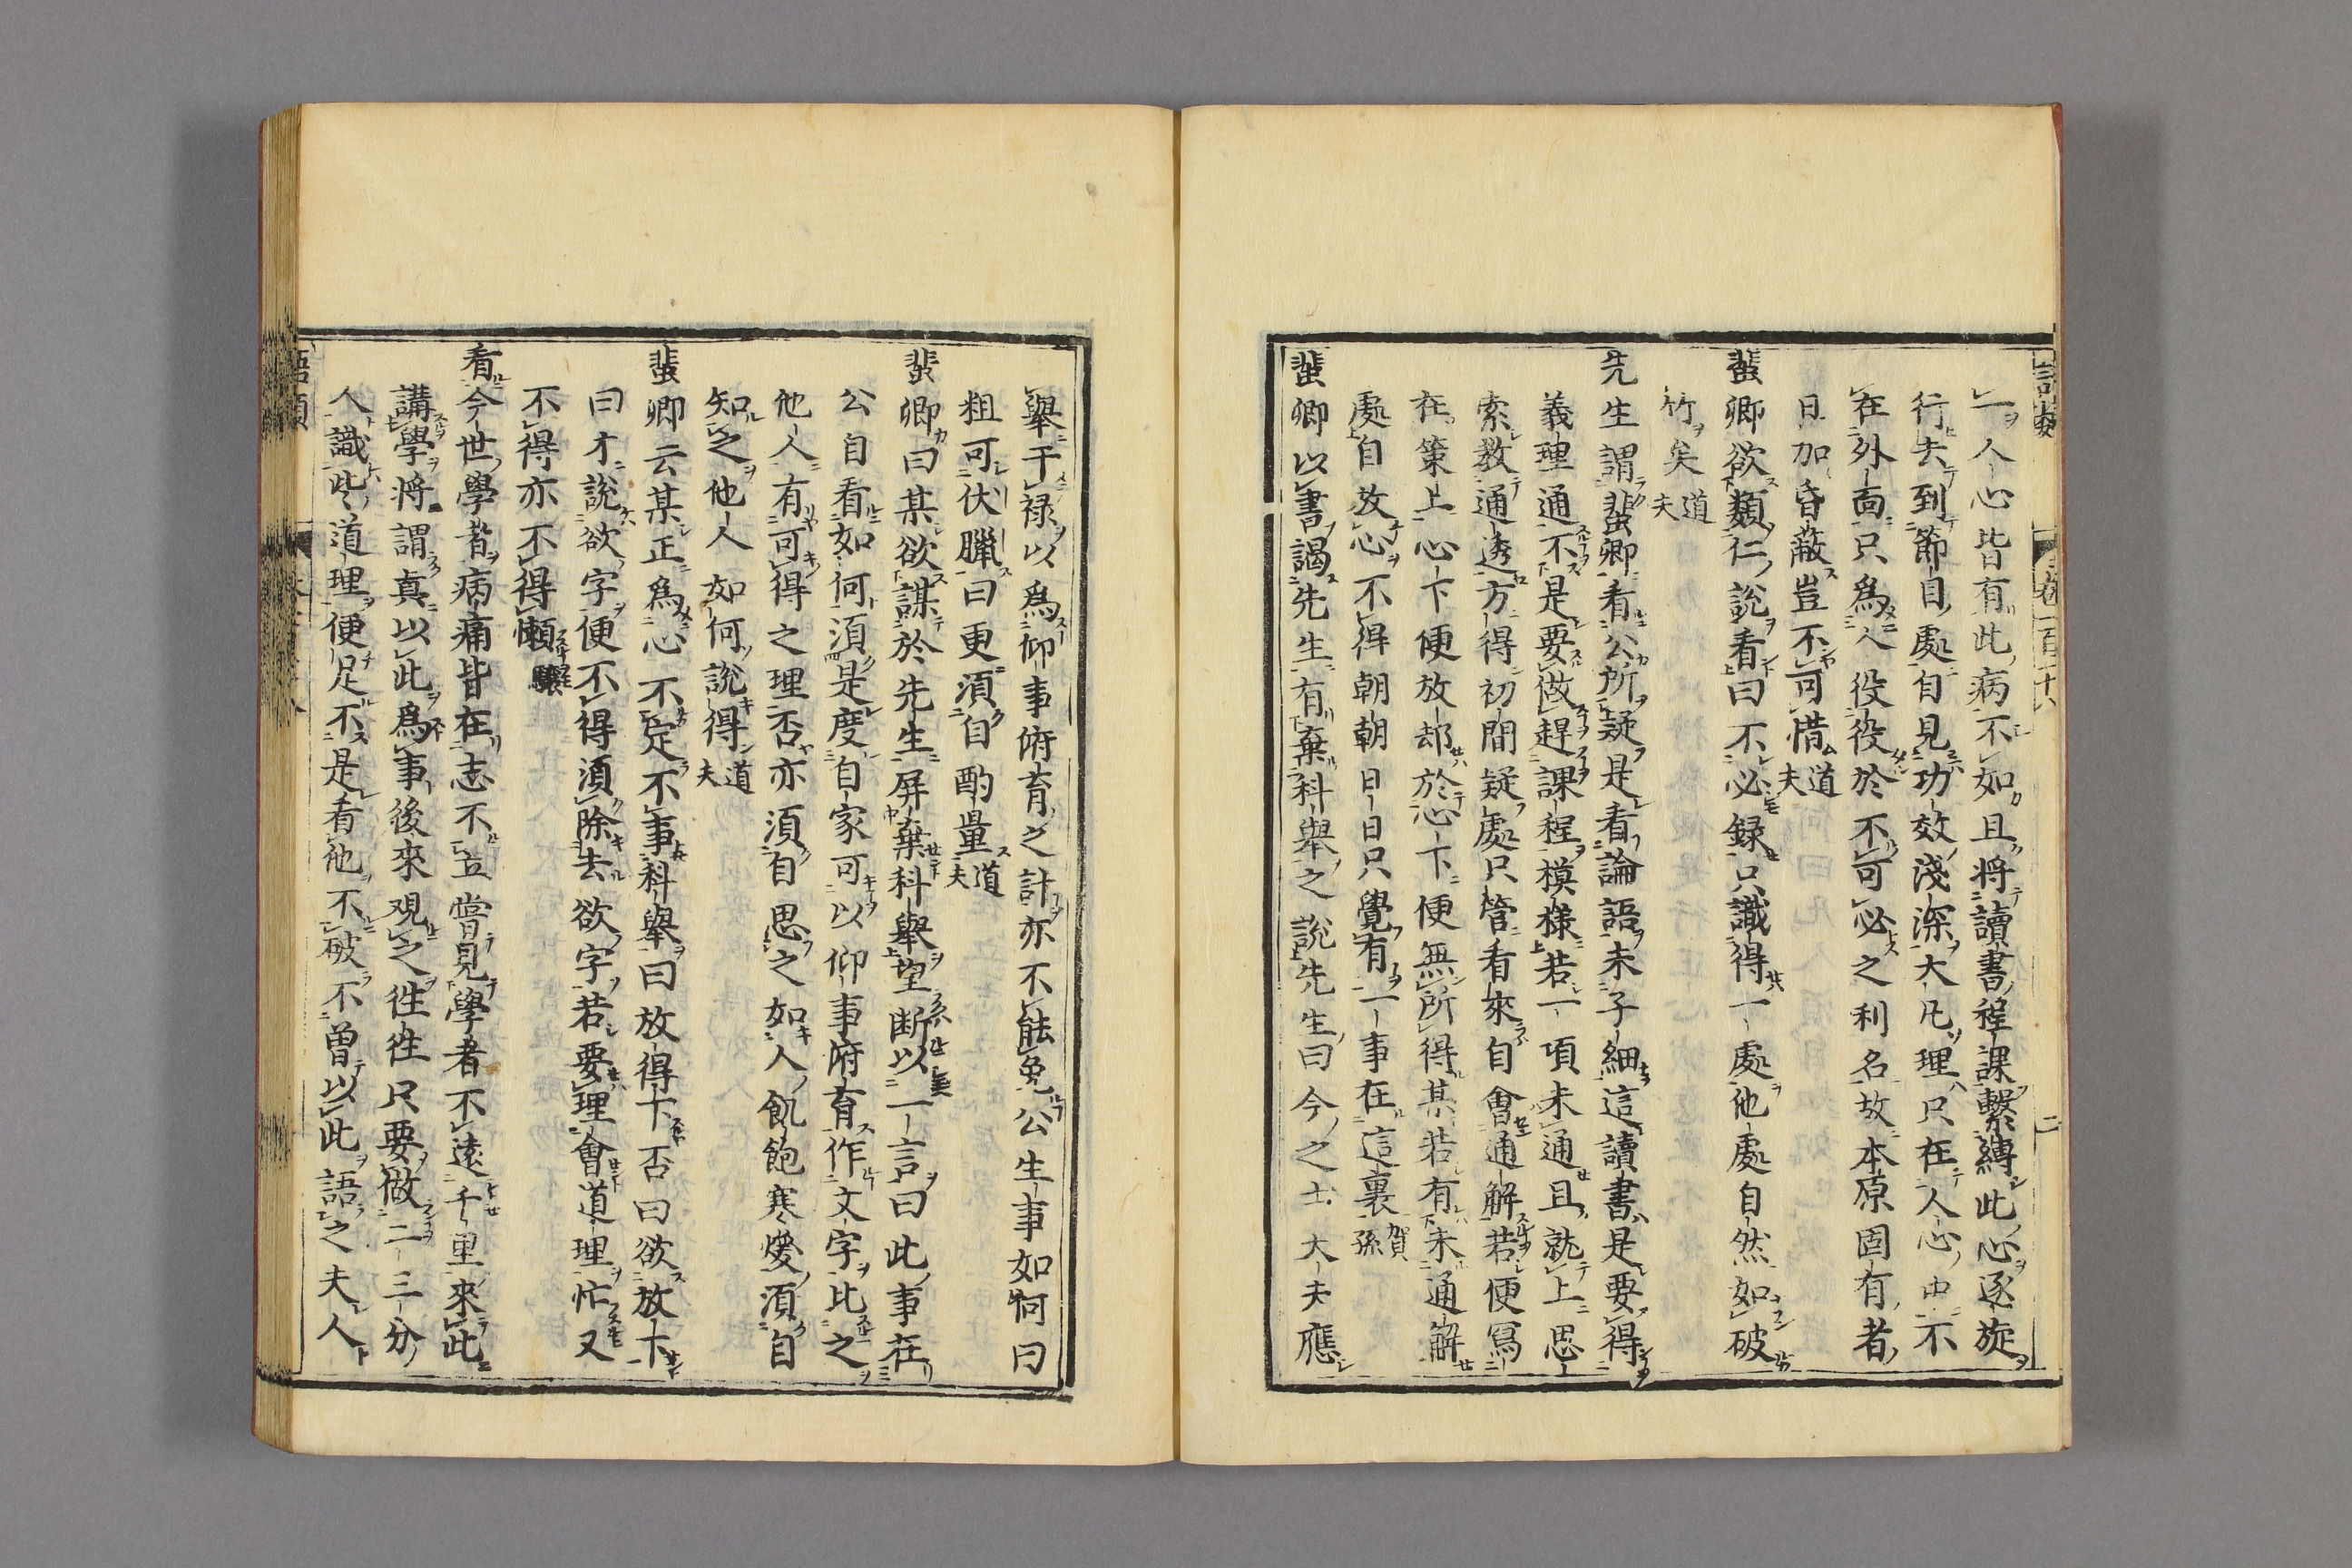 一人心皆有此病不如且將讀書程課繫縛此心逐旋
行去到節目處自見功效淺深大凡理只在人心中不
在外面只爲人役役於不可必之利名故本原固有者
日加昏蔽豈不可惜道夫
蜚卿欲類仁說看曰不必録只識得一處他處自然如破
竹矣道夫
先生謂蜚卿看公所疑是看論語未子細這讀書是要得
義理通不是要做趕課程模樣若一項未通且就上思
索教通透方得初間疑處只管看來自會通解若便寫
在策上心下便放却於心下便無所得某若有未通解
處自放心不得朝朝日日只覺有一事在這裏賀孫
蜚卿以書謁先生有棄科舉之說先生曰今之士大夫應
舉干祿以爲仰事俯育之計亦不能免公生事如何曰
粗可伏臘曰更須自酌量道夫
蜚卿曰某欲謀於先生屏棄科舉望断以一言曰此事在
公自看如何須是度自家可以仰事俯育作文字比之
他人有可得之理否亦須自思之如人飢飽寒煖須自
知之他人如何說得道夫
蜚卿云某正爲心不定不事科舉曰放得下否曰欲放下
曰才說欲字便不得須除去欲字若要理會道理忙又
不得亦不得懶驤
看今世學者病痛皆在志不立嘗見學者不遠千里來此
講學將謂真以此爲事後來观之徃徃只要做二三分
人識些道理便足不是看他不破不曾以此語之夫人
語類